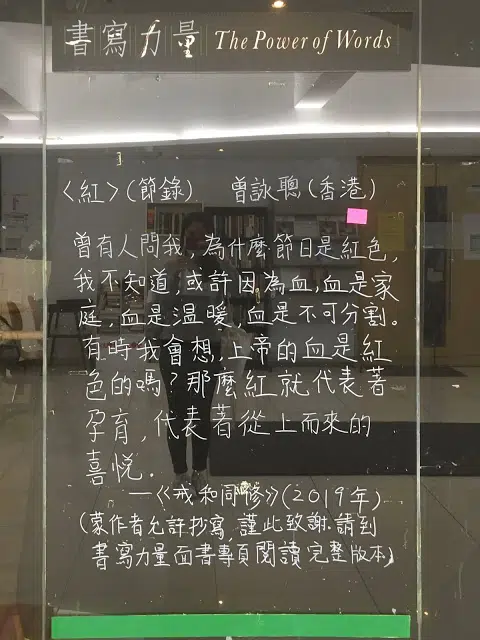 書寫力量 The Power of Words
〈紅〉(節錄) 曾詠聰(香港)
曾有人問我,為什麼節日是紅色,
我不知道,或許因為血,血是家
庭,血是溫暖,血是不可分割。
有時我會想,上帝的血是紅
色的嗎?那麼紅就代表著
孕育,代表著從上而來的
喜悅.
—《戒和同修》(2019年)
(蒙作者允許抄寫,謹此致謝.請到
書寫力量面書專頁閱讀完整版本)